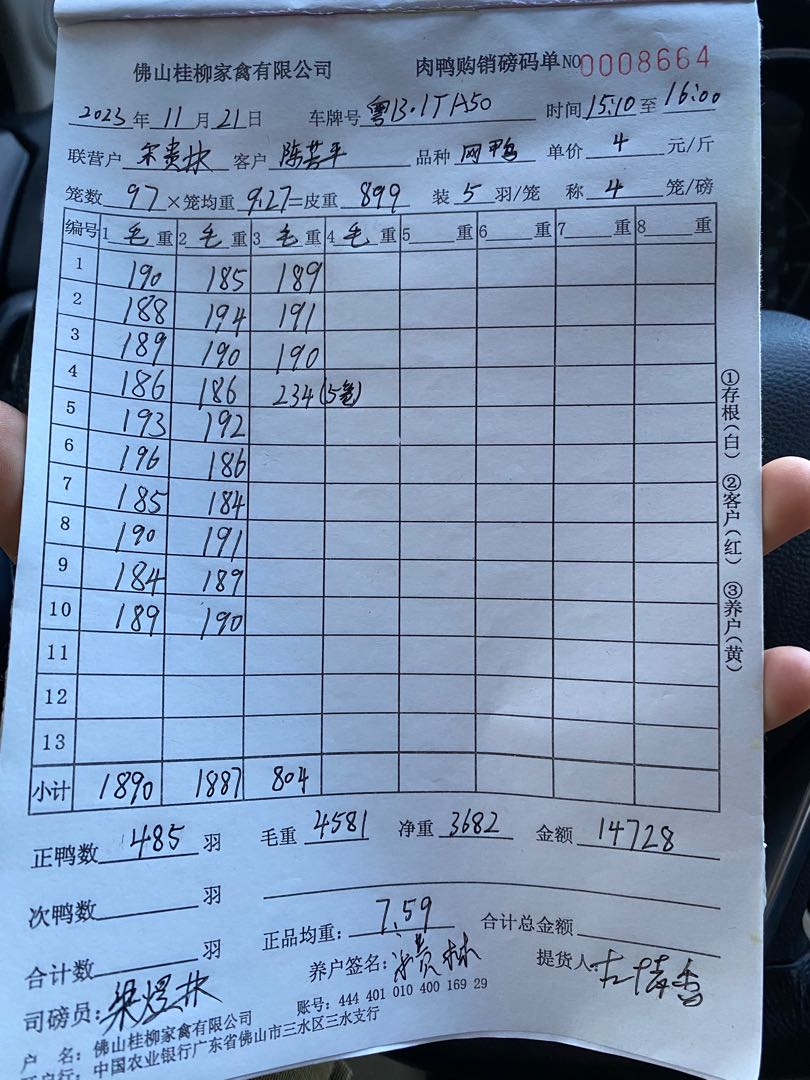 佛山桂柳家禽有限公司 肉鸭购销磅码单 NO 0008664
2023年11月21日 车牌号 粤B·1TA50 时间15:10至16:00
联营户 客户 陈芸平 品种 网鸭 单价 4 元/斤
笼数 97 ×笼均重 9.27=皮重 899 装 5 羽/笼 称 4 笼/磅
编号 1 毛 重 2 毛 重 3 毛 重 4 毛 重 5 重 6 重 7 重 8 重
1 190 185 189
2 188 194 191
3 189 190 190
4 186 186 234(5笼)
5 193 192
6 196 186
7 185 184
8 190 191
9 184 189
10 189 190
11
12
13
小计 1890 1887 804
①存根(白) ②客户(红) ③养户(黄)
正鸭数 485 羽 毛重 4581 净重 3682 金额 14728
次鸭数 羽
正品均重: 7.59 合计总金额
合计数 羽
养户签名: 提货人:
司磅员: 梁煜林
户 名: 佛山桂柳家禽有限公司 账号: 444 401 010 400 169 29
户行: 中国农业银行广东省佛山市三水区三水支行